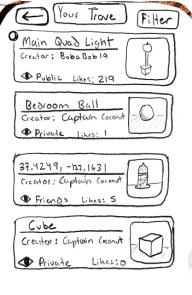 Your Trove
Filter
Main Quad Light
Creator: BobaBob19
Public Likes: 219
Bedroom Ball
Creator: Captain Coconut
Private Likes: 1
37.4249, -122.1631
Creator: Captain Coconut
Friends Likes: 5
Cube
Creator: Captain Coconut
Private Likes: 0